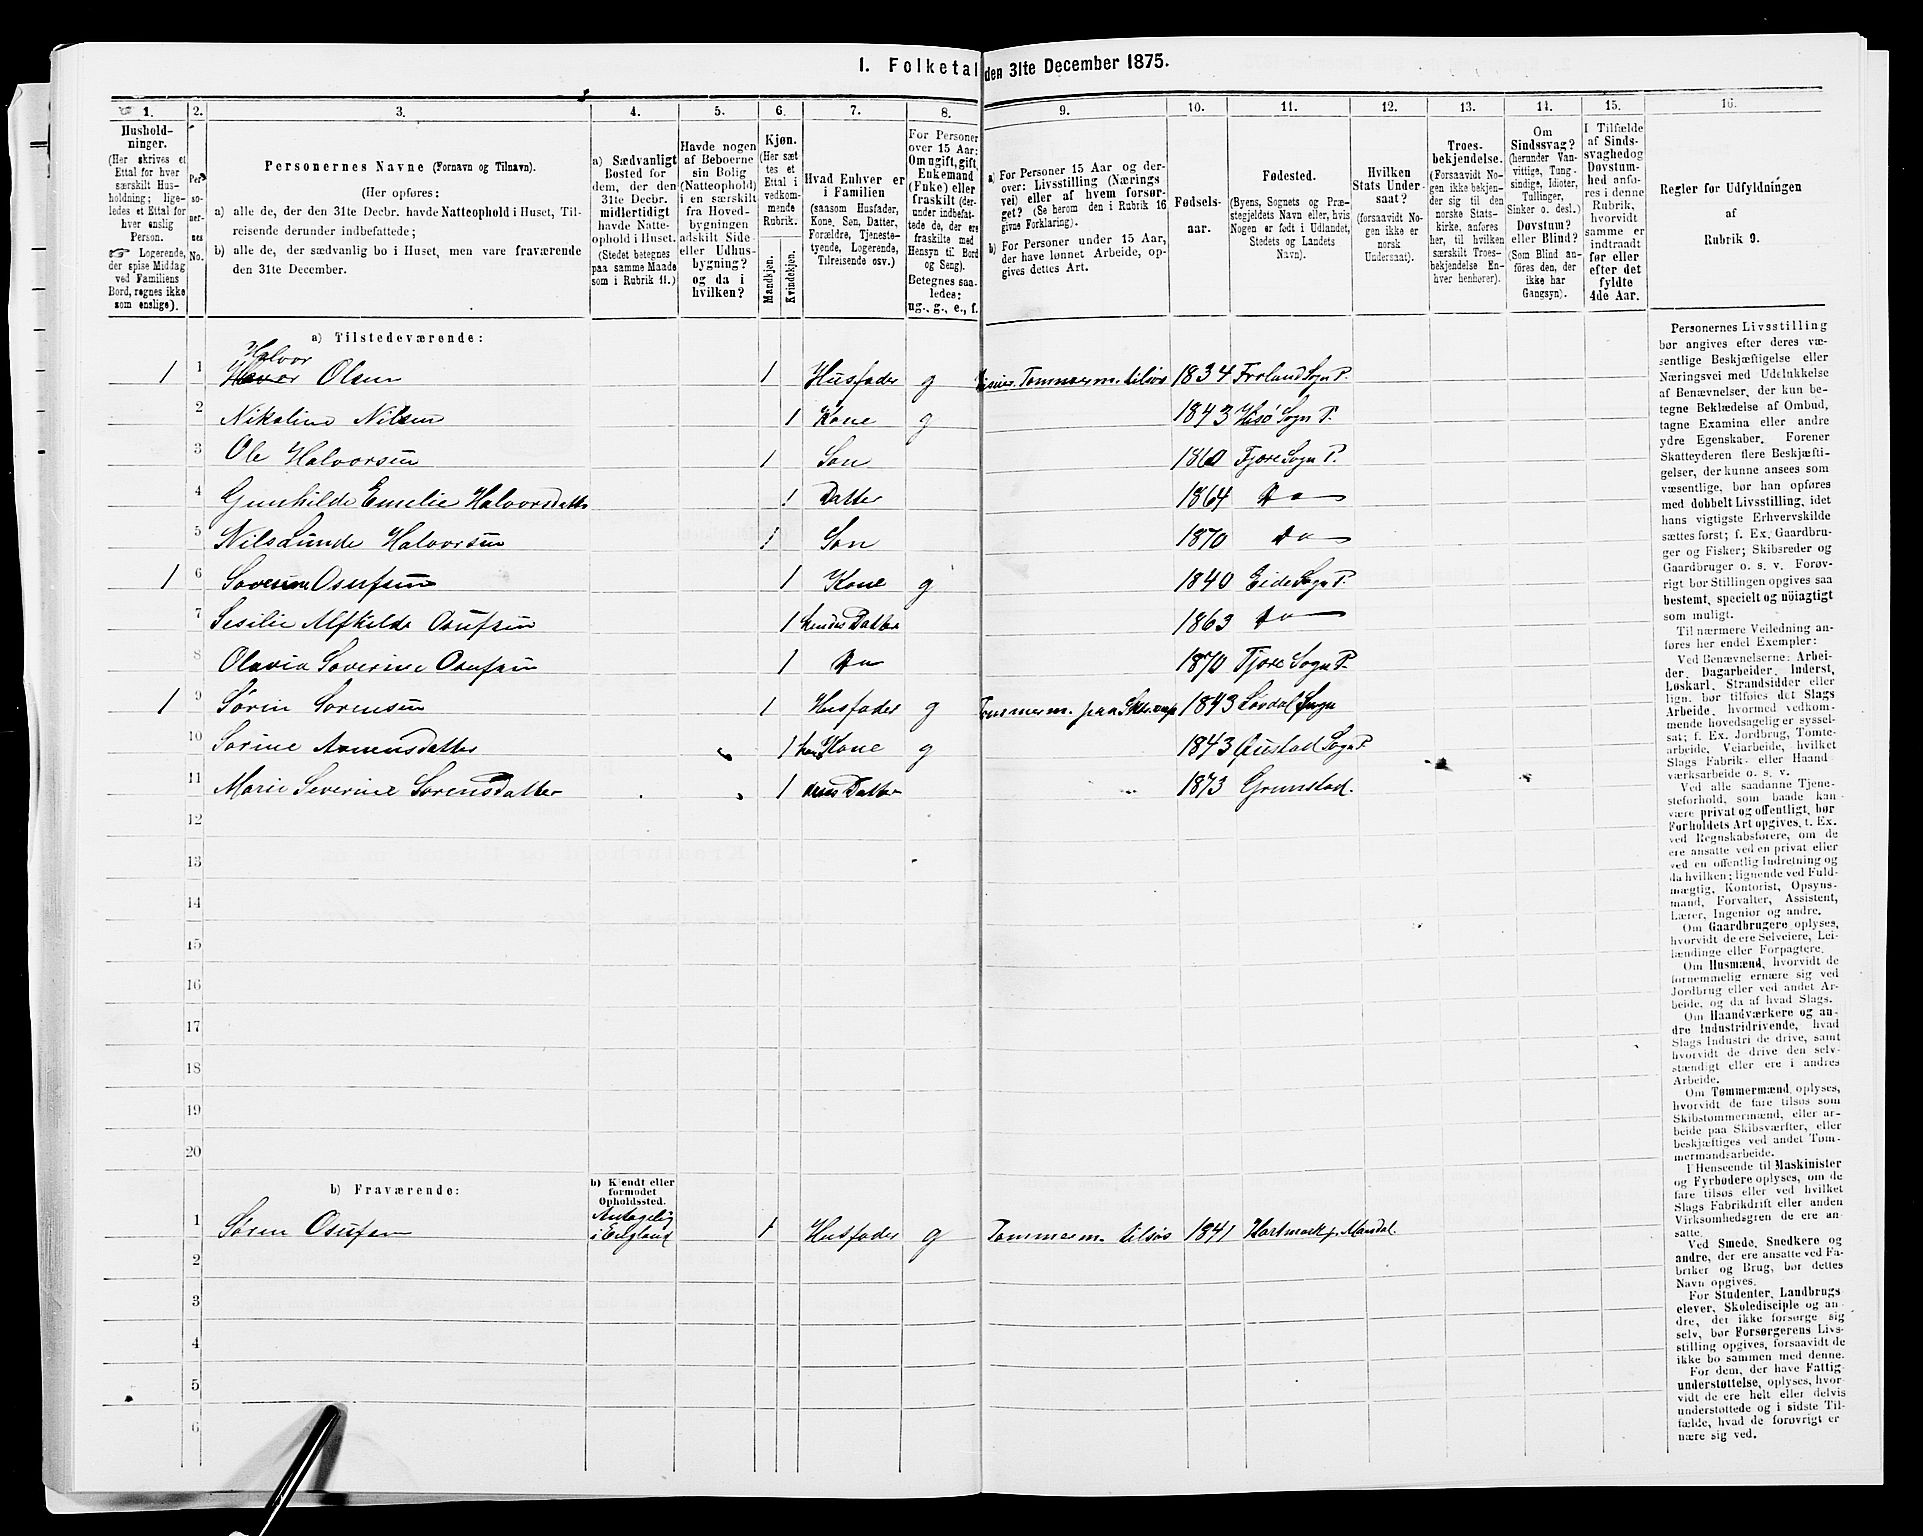 I. Folketal den 31te December 1875.
1. 2. 3. 4. 5. 6. 7. 8. 9. 10. 11. 12. 13. 14. 15. 16.
Hushold-
ninger.
(Her skrives et
Ettal for hver
særskilt Hus-
holdning; lige-
ledes et Ettal for
hver enslig
Person.
☞ Logerende,
der spise Middag
ved Familiens
Bord, regnes ikke
som enslige).
Per-
so-
ner-
nes
No.
Personernes Navne (Fornavn og Tilnavn).
(Her opføres:
a) alle de, der den 31te Decbr. havde Natteophold i Huset, Til-
reisende derunder indbefattede;
b) alle de, der sædvanlig bo i Huset, men vare fraværende
den 31te December.
a) Sædvanligt
Bosted for
dem, der den
31te Decbr.
midlertidigt
havde Natte-
ophold i Huset.
(Stedet betegnes
paa samme Maade
som i Rubrik 11.)
Havde nogen
af Beboerne
sin Bolig
(Natteophold)
i en særskilt
fra Hoved-
bygningen
adskilt Side-
eller Udhus-
bygning?
og da i
hvilken?
Kjøn.
(Her sæt-
tes et
Ettal i
vedkom-
mende
Rubrik.
Mandkjøn.
Kvindekjøn.
Hvad Enhver er
i Familien
(saasom Husfader,
Kone, Søn, Datter,
Forældre, Tjeneste-
tyende, Logerende,
Tilreisende osv.)
For Personer
over 15 Aar:
Om ugift, gift,
Enkemand
(Enke) eller
fraskilt (der-
under indbefat-
tede de, der ere
fraskilte med
Hensyn til Bord
og Seng).
Betegnes saa-
ledes:
ug., g., e., f.
a) For Personer 15 Aar og der-
over: Livsstilling (Nærings-
vei) eller af hvem forsør-
get? (Se herom den i Rubrik 16
givne Forklaring).
b) For Personer under 15 Aar,
der have lønnet Arbeide, op-
gives dettes Art.
Fødsels-
aar.
Fødested.
(Byens, Sognets og Præ-
stegjeldets Navn eller, hvis
Nogen er født i Udlandet,
Stedets og Landets
Navn).
Hvilken
Stats Under-
saat?
(forsaavidt No-
gen ikke er
norsk
Undersaat).
Troes-
bekjendelse.
(Forsaavidt No-
gen ikke bekjen-
der sig til den
norske Stats-
kirke, anføres
her, til hvilken
særskilt Troes-
bekjendelse En-
hver henhører).
Om
Sindssvag?
(herunder Van-
vittige, Tung-
sindige, Idioter,
Tullinger,
Sinker o. desl.)
Døvstum?
eller Blind?
(Som Blind an-
føres den, der
ikke har
Gangsyn).
I Tilfælde
af Sinds-
svaghed og
Døvstum-
hed anfø-
res i denne
Rubrik,
hvorvidt
samme er
indtraadt
før eller
efter det
fyldte
4de Aar.
Regler for Udfyldningen
af
Rubrik 9.
a) Tilstedeværende:
1 1 Halvor Olsen 1 Husfader g Tømmerm. tilsøs 1834 Froland Sogn P.
2 Nikoline Nilsen 1 Kone g 1843 Hisø Sogn P.
3 Ole Halvorsen 1 Søn 1860 Fjære Sogn P.
4 Gunhilde Emelie Halvorsdatter 1 Datter 1864 Do
5 Nils Lunde Halvorsen 1 Søn 1870 Do
1 6 Osufsen 1 Kone g 1840 Eide Sogn P.
7 Sesilie Alfhilde Osufsen 1 hendes Datter 1863 Do
8 Olavia Soverine Osufsen 1 Do 1870 Fjære Sogn P.
1 9 Sørin Sørensen 1 Husfader g Tømmerm. paa 1843 Sogn
10 Sorine 1 Kone g 1843 Sogn P.
11 Marie Severine Sorensdatter 1 deres Datter 1873 Grimstad.
12
13
14
15
16
17
18
19
20
b) Fraværende:
b) Kjendt eller
formodet
Opholdssted.
1 Søren Osufsen Antagelig
i England 1 Husfader g Tømmerm. tilsøs 1841 Hartmark p. Mandal.
2
3
4
5
6
Personernes Livsstilling
bør angives efter deres væ-
sentlige Beskjæftigelse eller
Næringsvei med Udelukkelse
af Benævnelser, der kun be-
tegne Beklædelse af Ombud,
tagne Examina eller andre
ydre Egenskaber. Forener
Skatteyderen flere Beskjæfti-
gelser, der kunne ansees som
væsentlige, bør han opføres
med dobbelt Livsstilling, idet
hans vigtigste Erhvervskilde
sættes først; f. Ex. Gaardbru-
ger og Fisker; Skibsreder og
Gaardbruger o. s. v. Forøv-
rigt bør Stillingen opgives saa
bestemt, specielt og nöiagtigt
som muligt.
Til nærmere Veiledning an-
føres her endel Exempler:
Ved Benævnelserne: Arbei-
der, Dagarbeider, Inderst,
Løskarl, Strandsidder eller
lign. bør tilføies det Slags
Arbeide, hvormed vedkom-
mende hovedsagelig er syssel-
sat; f. Ex. Jordbrug, Tomte-
arbeide, Veiarbeide, hvilket
Slags Fabrik- eller Haand-
værksarbeide o. s. v.
Ved alle saadanne Tjene-
steforhold, som baade kan
være privat og offentligt, bør
Forholdets Art opgives, t. Ex.
ved Regnskabsførere, om de
ere ansatte ved en privat eller
ved en offentlig Indretning og
da hvilken; lignende ved Fuld-
mægtig, Kontorist, Opsyns-
mand, Forvalter, Assistent,
Lærer, Ingeniør og andre.
Om Gaardbrugere oplyses,
hvorvidt de ere Selveiere, Lei-
lændinge eller Forpagtere.
Om Husmænd, hvorvidt de
fornemmelig ernære sig ved
Jordbrug eller ved andet Ar-
beide, og da af hvad Slags.
Om Haandværkere og an-
dre Industridrivende, hvad
Slags Industri de drive, samt
hvorvidt de drive den selv-
stændigt eller ere i andres
Arbeide.
Om Tømmermænd oplyses,
hvorvidt de fare tilsøs som
Skibstømmermænd, eller ar-
beide paa Skibsværfter, eller
beskjæftiges ved andet Tøm-
mermandsarbeide.
I Henseende til Maskinister
og Fyrbødere oplyses, om de
fare tilsøs eller ved hvilket
Slags Fabrikdrift eller anden
Virksomhedsgren de ere an-
satte.
Ved Smede, Snedkere og
andre, der ere ansatte ved Fa-
briker og Brug, bør dettes
Navn opgives.
For Studenter, Landbrugs-
elever, Skoledisciple og an-
dre, det ikke forsørge sig
selv, bør Forsørgerens Livs-
stilling opgives, forsaavidt de
ikke bo sammen med denne.
For dem, der have Fattig-
understøttelse, oplyses, hvor-
vidt de ere helt eller delvis
understøttede og i sidste Til-
fælde, hvad de forøvrigt er-
nære sig ved.